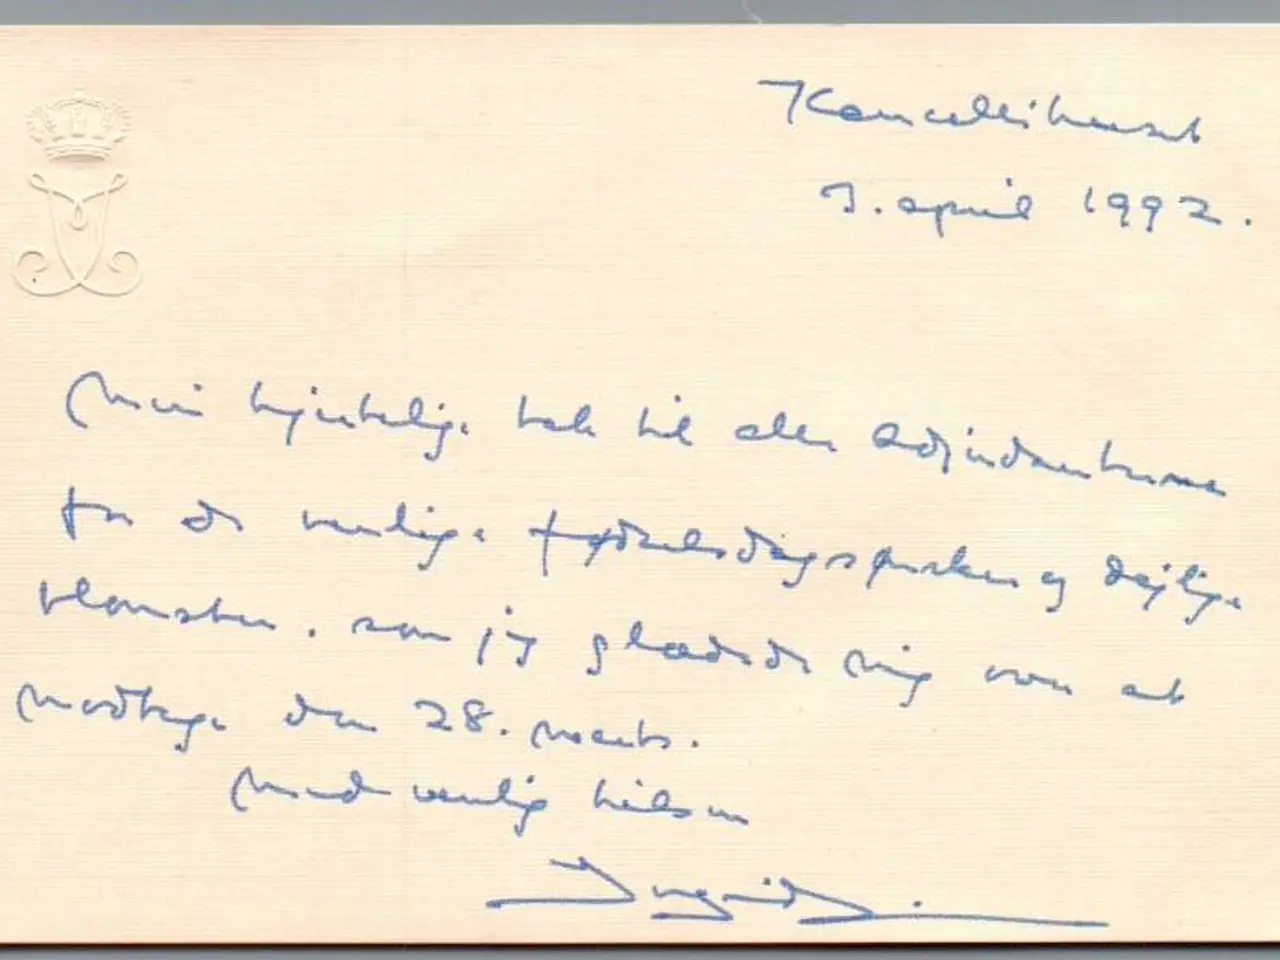 Kancellihuset
3. april 1992.
Min hjertelige tak til alle Adjudanterne
for de venlige fødselsdagsønsker og dejlige
blomster, som jeg glædede mig over at
modtage den 28. marts.
Med venlig hilsen
Ingrid.